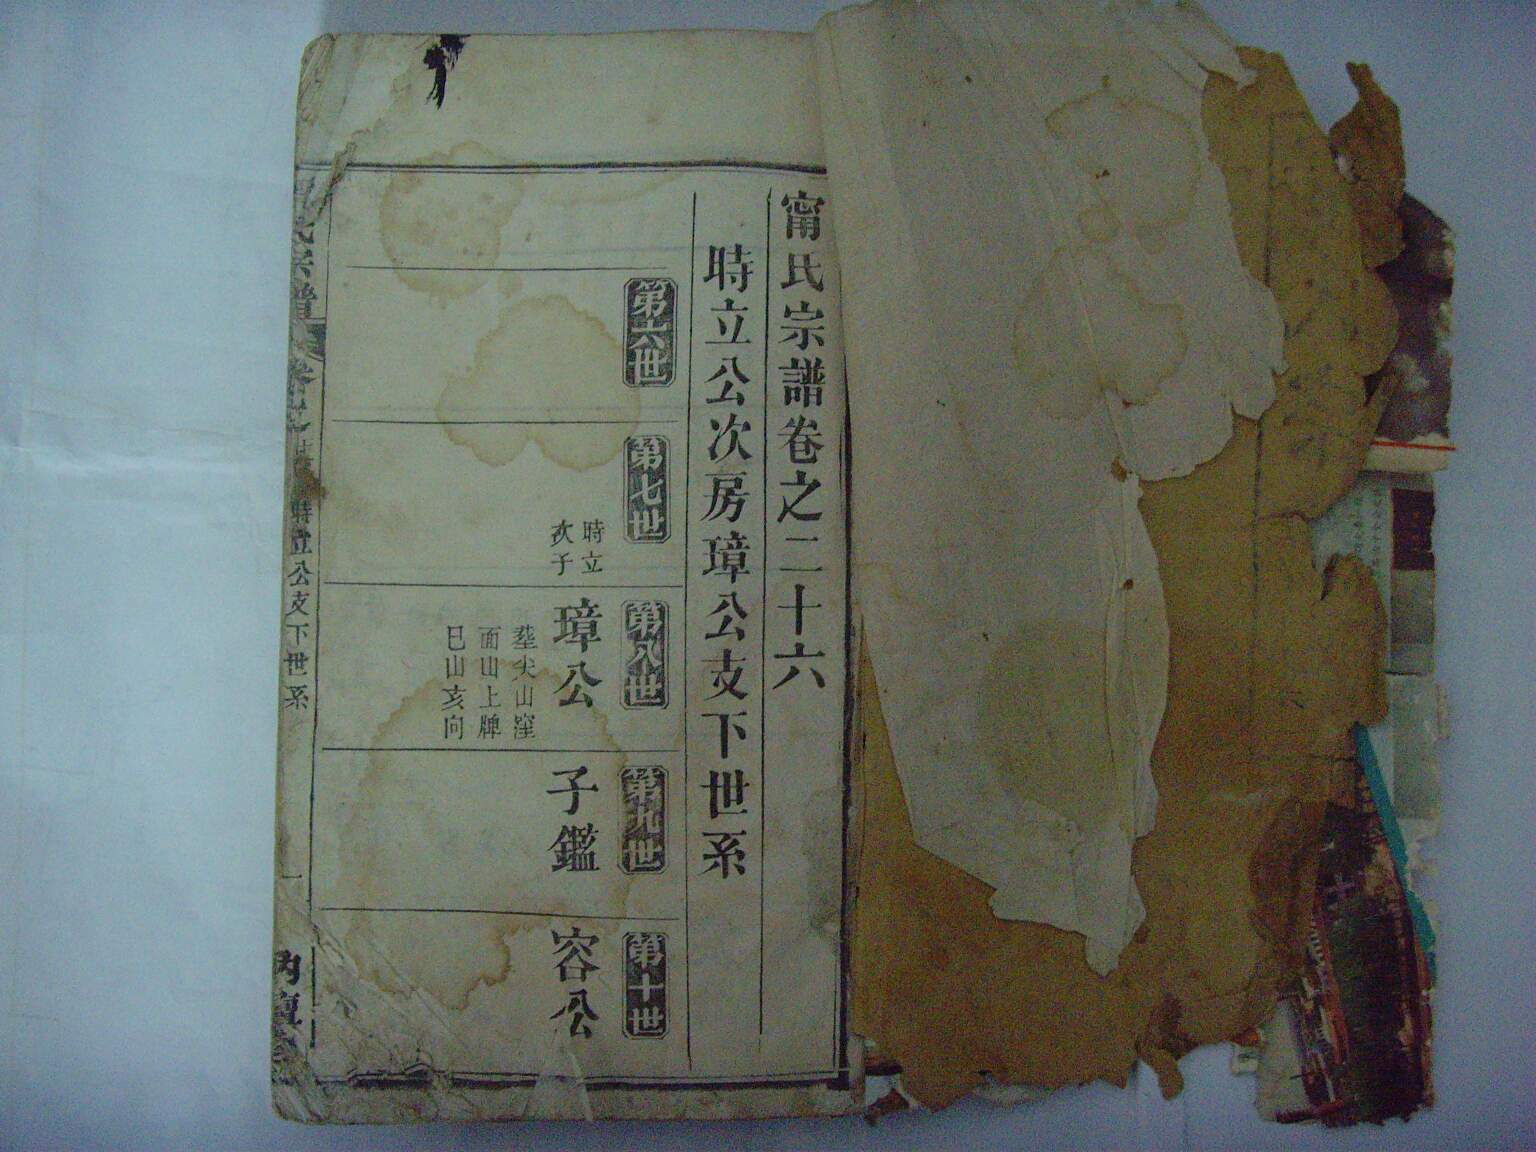 甯氏宗譜卷之二十六
時立公次房璋公支下世系
第六世
第七世
時立
次子
第八世
璋公
塟尖山窪
面山上牌
巳山亥向
第九世
子鑑
第十世
容公
氏宗譜
卷之
時立公支下世系
一